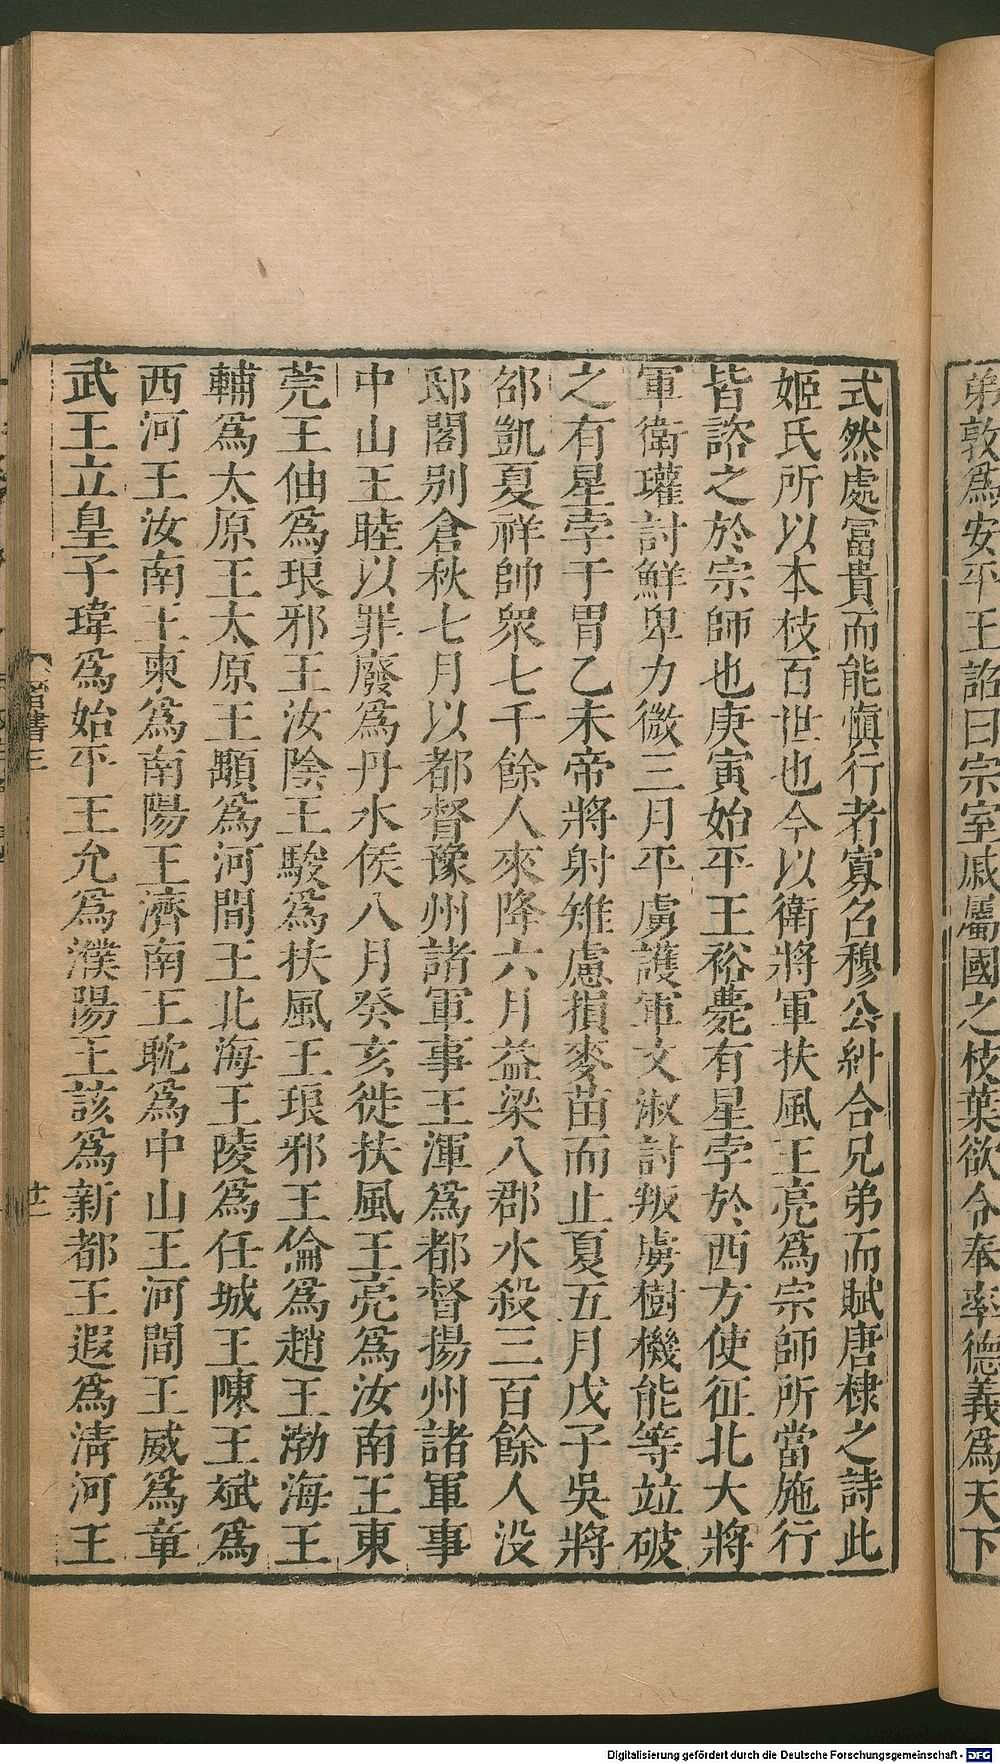 弟敦爲安平王詔曰宗室戚屬國之枝葉欲令奉率德義爲天下
式然處富貴而能愼行者寡召穆公糾合兄弟而賦唐棣之詩此
姬氏所以本枝百世也今以衛將軍扶風王亮爲宗師所當施行
皆諮之於宗師也庚寅始平王裕薨有星孛於西方使征北大將
軍衛瓘討鮮卑力微三月平虜護軍文淑討叛虜樹機能等竝破
之有星孛于胃乙未帝將射雉慮損麥苗而止夏五月戊子吳將
邵凱夏祥帥衆七千餘人來降六月益梁八郡水殺三百餘人没
邸閣别倉秋七月以都督豫州諸軍事王渾爲都督揚州諸軍事
中山王睦以罪廢爲丹水侯八月癸亥徙扶風王亮爲汝南王東
莞王伷爲琅邪王汝陰王駿爲扶風王琅邪王倫爲趙王渤海王
輔爲太原王太原王顒爲河間王北海王陵爲任城王陳王斌爲
西河王汝南王柬爲南陽王濟南王耽爲中山王河間王威爲章
武王立皇子瑋爲始平王允爲濮陽王該爲新都王遐爲淸河王
晉書三
廿二
Digitalisierung gefördert durch die Deutsche Forschungsgemeinschaft - DFG